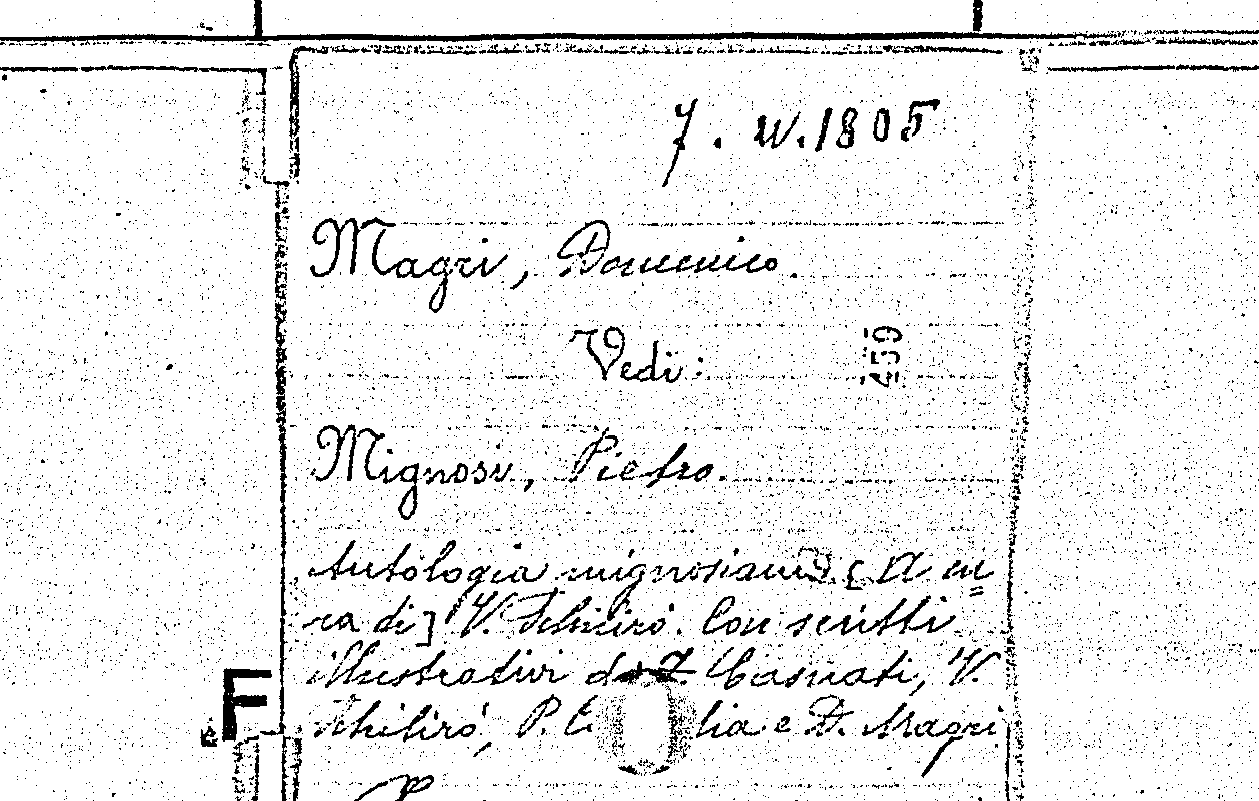 7. W. 1805
Magri, Domenico.
Vedi:
459
Mignosi, Pietro.
Antologia mignosiana [A cu=
ra di] V. Schilirò. Con scritti
illustrativi di F. Casnati, V.
Schilirò, P. E lia e D. Magri
F